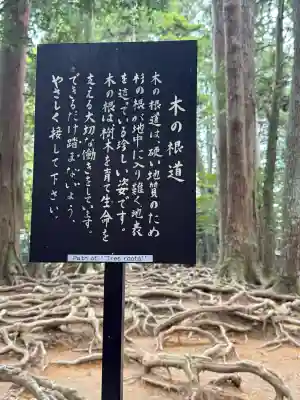 木の根道
木の根道は硬い地質のため
杉の根が地中に入り難く地表
を這っている珍しい姿です。
木の根は樹木を育て生命を
支える大切な働きをしています。
できるだけ踏まないよう、
やさしく接して下さい。
Path of "Tree roots"